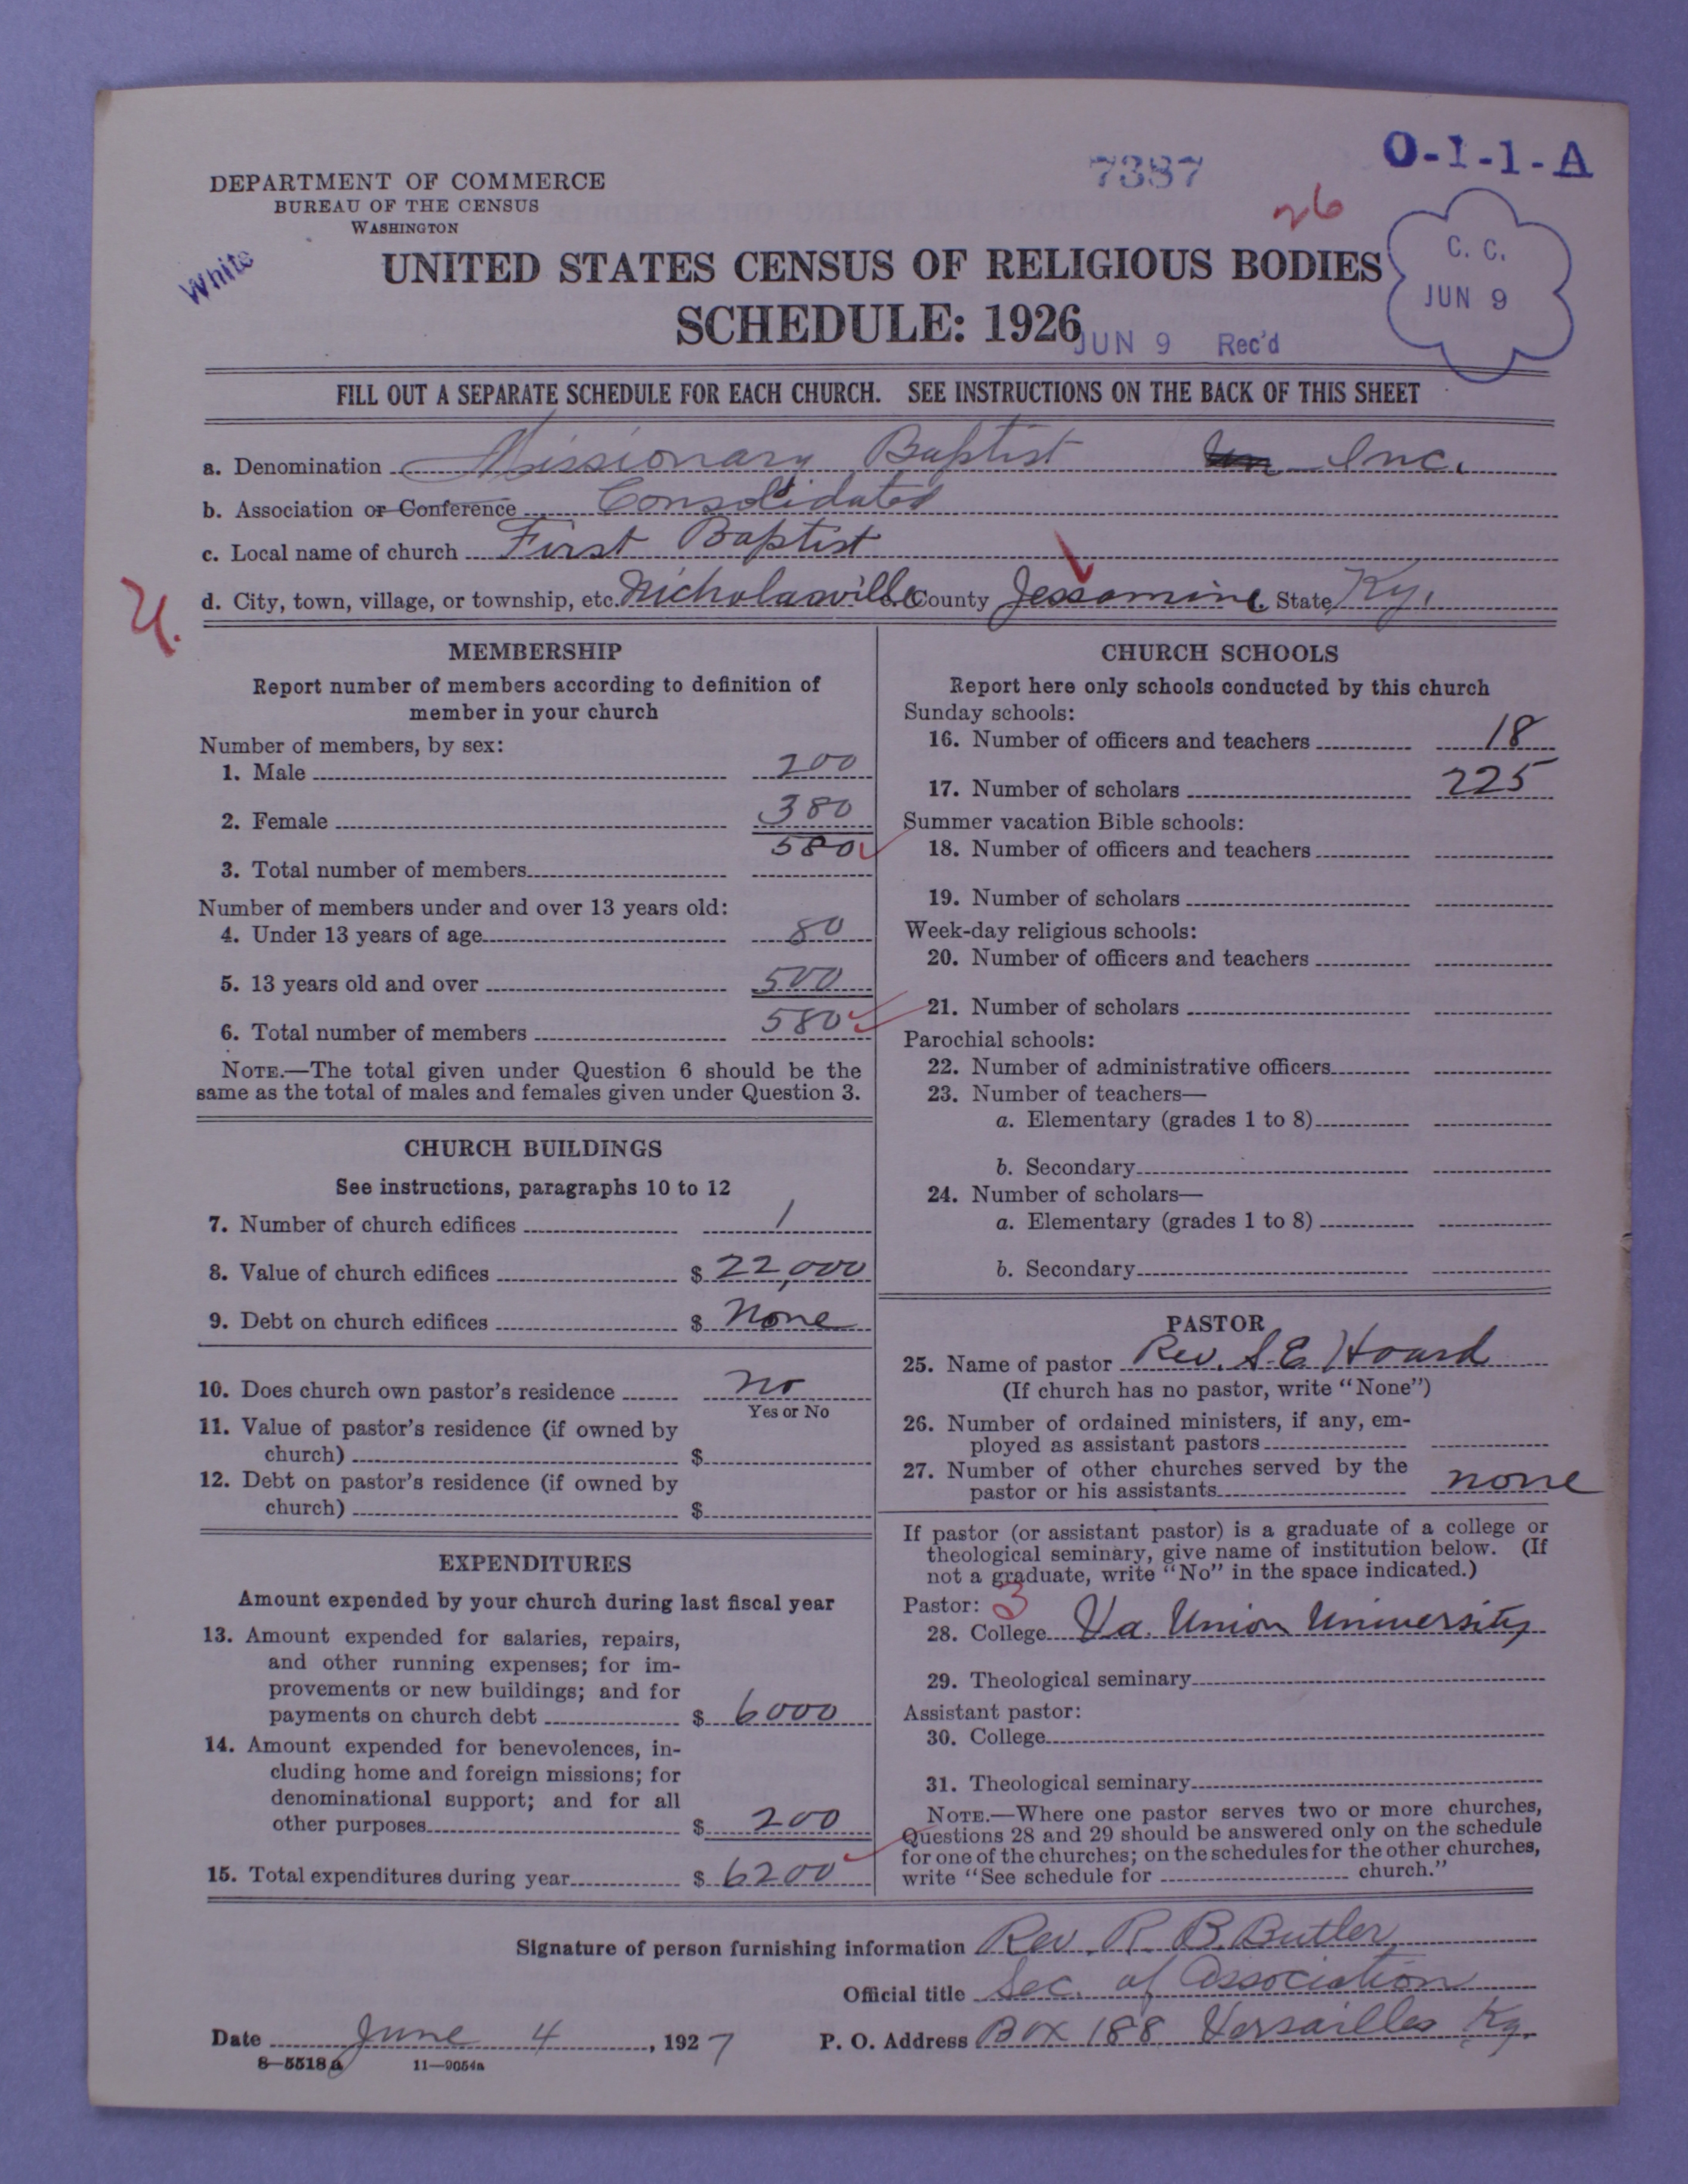 O-1-1-A
7387
26
DEPARTMENT OF COMMERCE
BUREAU OF THE CENSUS
WASHINGTON
White
C. C.
JUN 9
UNITED STATES CENSUS OF RELIGIOUS BODIES
SCHEDULE: 1926
JUN 9 Rec'd
FILL OUT A SEPARATE SCHEDULE FOR EACH CHURCH. SEE INSTRUCTIONS ON THE BACK OF THIS SHEET
a. Denomination Missionary Baptist Inc.
b. Association or Conference Consolidated
c. Local name of church First Baptist
d. City, town, village, or township, etc. Nicholasville County Jessamine State Ky.
U.
MEMBERSHIP
Report number of members according to definition of
member in your church
Number of members, by sex:
1. Male 200
2. Female 380
3. Total number of members 580
Number of members under and over 13 years old:
4. Under 13 years of age 80
5. 13 years old and over 500
6. Total number of members 580
NOTE.—The total given under Question 6 should be the
same as the total of males and females given under Question 3.
CHURCH BUILDINGS
See instructions, paragraphs 10 to 12
7. Number of church edifices 1
8. Value of church edifices $ 22,000
9. Debt on church edifices $ None
10. Does church own pastor's residence no
Yes or No
11. Value of pastor's residence (if owned by
church) $
12. Debt on pastor's residence (if owned by
church) $
EXPENDITURES
Amount expended by your church during last fiscal year
13. Amount expended for salaries, repairs,
and other running expenses; for im-
provements or new buildings; and for
payments on church debt $ 6000
14. Amount expended for benevolences, in-
cluding home and foreign missions; for
denominational support; and for all
other purposes $ 200
15. Total expenditures during year $ 6200
CHURCH SCHOOLS
Report here only schools conducted by this church
Sunday schools:
16. Number of officers and teachers 18
17. Number of scholars 225
Summer vacation Bible schools:
18. Number of officers and teachers
19. Number of scholars
Week-day religious schools:
20. Number of officers and teachers
21. Number of scholars
Parochial schools:
22. Number of administrative officers
23. Number of teachers—
a. Elementary (grades 1 to 8)
b. Secondary
24. Number of scholars—
a. Elementary (grades 1 to 8)
b. Secondary
PASTOR
25. Name of pastor Rev. S. E. Hoard
(If church has no pastor, write "None")
26. Number of ordained ministers, if any, em-
ployed as assistant pastors
27. Number of other churches served by the
pastor or his assistants none
If pastor (or assistant pastor) is a graduate of a college or
theological seminary, give name of institution below. (If
not a graduate, write "No" in the space indicated.)
Pastor: 3
28. College Va. Union University
29. Theological seminary
Assistant pastor:
30. College
31. Theological seminary
NOTE.—Where one pastor serves two or more churches,
Questions 28 and 29 should be answered only on the schedule
for one of the churches; on the schedules for the other churches,
write "See schedule for church."
Signature of person furnishing information Rev. R. B. Butler
Official title Sec. of Association
Date June 4, 1927 P. O. Address Box 188 Versailles Ky.
8—5518a 11—9054a